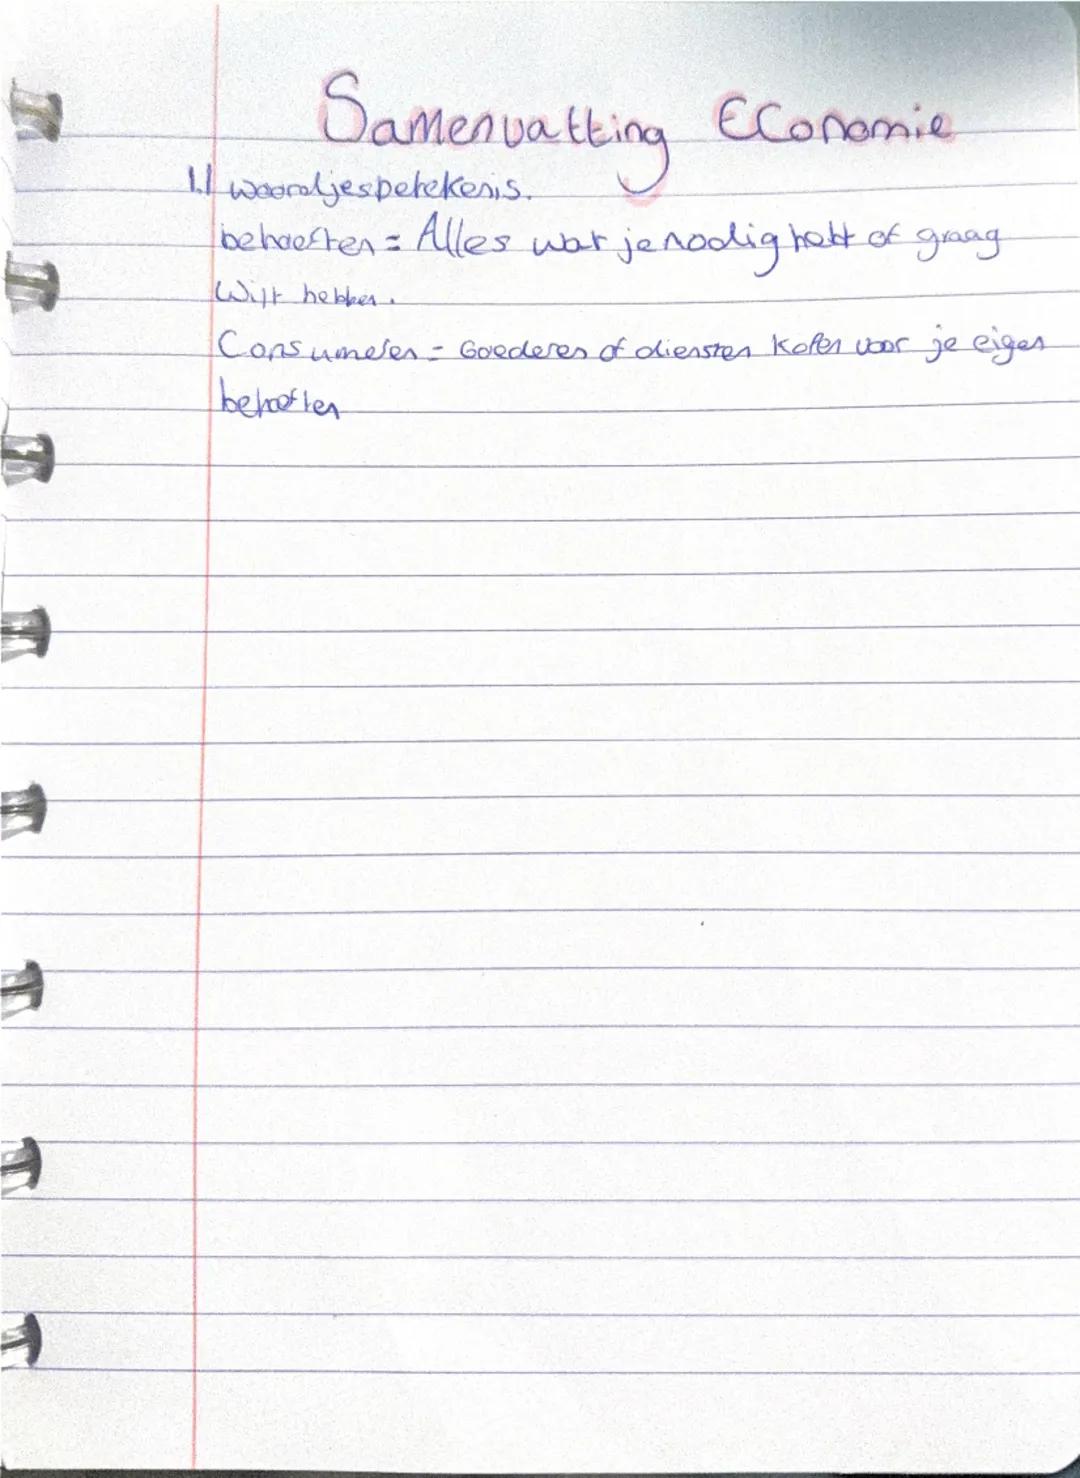 Samenvatting Economie
1.1 woordjesbetekenis.
behoeften = Alles wat je nodig hebt of graag
Wilt hebben.
Consumeren = Goederen of diensten kopen voor je eigen
behoeften